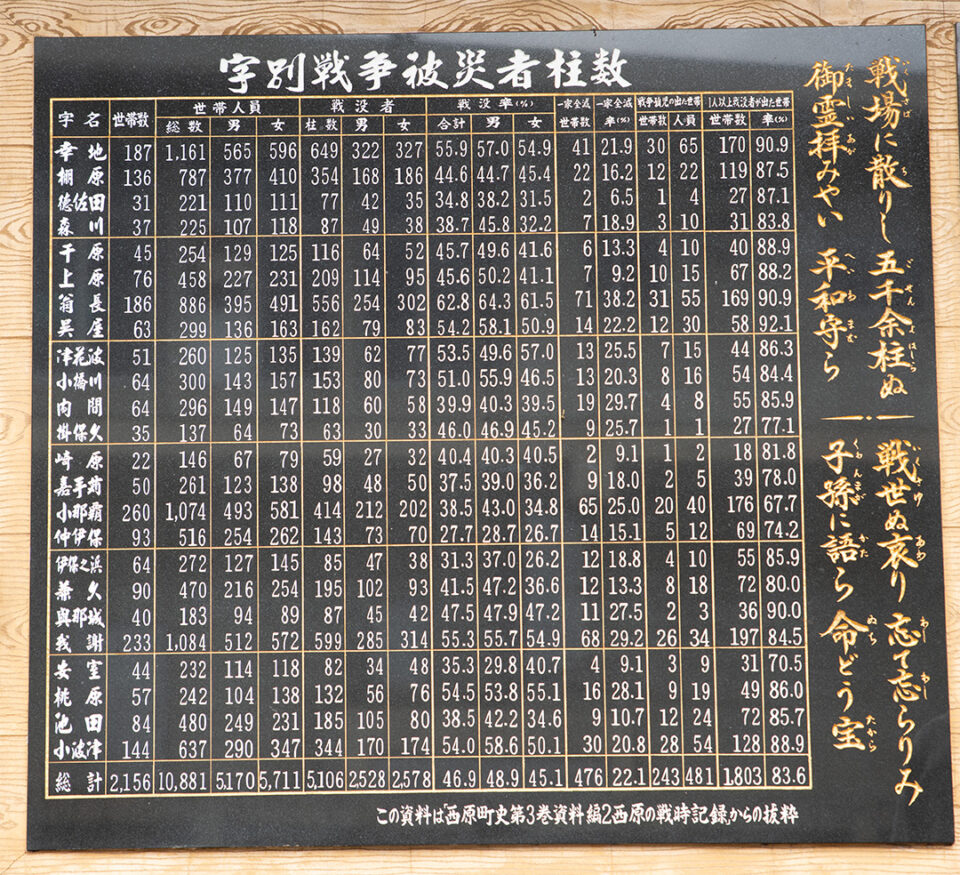 字別戦争被災者柱数
字名 世帯数 世帯人員 戦没者 戦没率(%) 一家全滅 一家全滅 戦争孤児の出た世帯 1人以上戦没者が出た世帯
総数 男 女 柱数 男 女 合計 男 女 世帯数 率(%) 世帯数 人員 世帯数 率(%)
幸地 187 1,161 565 596 649 322 327 55.9 57.0 54.9 41 21.9 30 65 170 90.9
棚原 136 787 377 410 354 168 186 44.6 44.7 45.4 22 16.2 12 22 119 87.5
徳佐田 31 221 110 111 77 42 35 34.8 38.2 31.5 2 6.5 1 4 27 87.1
森川 37 225 107 118 87 49 38 38.7 45.8 32.2 7 18.9 3 10 31 83.8
千原 45 254 129 125 116 64 52 45.7 49.6 41.6 6 13.3 4 10 40 88.9
上原 76 458 227 231 209 114 95 45.6 50.2 41.1 7 9.2 10 15 67 88.2
翁長 186 886 395 491 556 254 302 62.8 64.3 61.5 71 38.2 31 55 169 90.9
呉屋 63 299 136 163 162 79 83 54.2 58.1 50.9 14 22.2 12 30 58 92.1
津花波 51 260 125 135 139 62 77 53.5 49.6 57.0 13 25.5 7 15 44 86.3
小橋川 64 300 143 157 153 80 73 51.0 55.9 46.5 13 20.3 8 16 54 84.4
内間 64 296 149 147 118 60 58 39.9 40.3 39.5 19 29.7 4 8 55 85.9
掛保久 35 137 64 73 63 30 33 46.0 46.9 45.2 9 25.7 1 1 27 77.1
崎原 22 146 67 79 59 27 32 40.4 40.3 40.5 2 9.1 1 2 18 81.8
嘉手苅 50 261 123 138 98 48 50 37.5 39.0 36.2 9 18.0 2 5 39 78.0
小那覇 260 1,074 493 581 414 212 202 38.5 43.0 34.8 65 25.0 20 40 176 67.7
仲伊保 93 516 254 262 143 73 70 27.7 28.7 26.7 14 15.1 5 12 69 74.2
伊保之浜 64 272 127 145 85 47 38 31.3 37.0 26.2 12 18.8 4 10 55 85.9
兼久 90 470 216 254 195 102 93 41.5 47.2 36.6 12 13.3 8 18 72 80.0
與那城 40 183 94 89 87 45 42 47.5 47.9 47.2 11 27.5 2 3 36 90.0
我謝 233 1,084 512 572 599 285 314 55.3 55.7 54.9 68 29.2 26 34 197 84.5
安室 44 232 114 118 82 34 48 35.3 29.8 40.7 4 9.1 3 9 31 70.5
桃原 57 242 104 138 132 56 76 54.5 53.8 55.1 16 28.1 9 19 49 86.0
池田 84 480 249 231 185 105 80 38.5 42.2 34.6 9 10.7 12 24 72 85.7
小波津 144 637 290 347 344 170 174 54.0 58.6 50.1 30 20.8 28 54 128 88.9
総計 2,156 10,881 5170 5,711 5,106 2528 2,578 46.9 48.9 45.1 476 22.1 243 481 1,803 83.6
この資料は「西原町史第3巻資料編2西原の戦時記録」からの抜粋
戦場に散りし 五千余柱ぬ
御霊拝みやい 平和守ら
戦世ぬ哀り 忘て忘らりみ
子孫に語ら 命どう宝